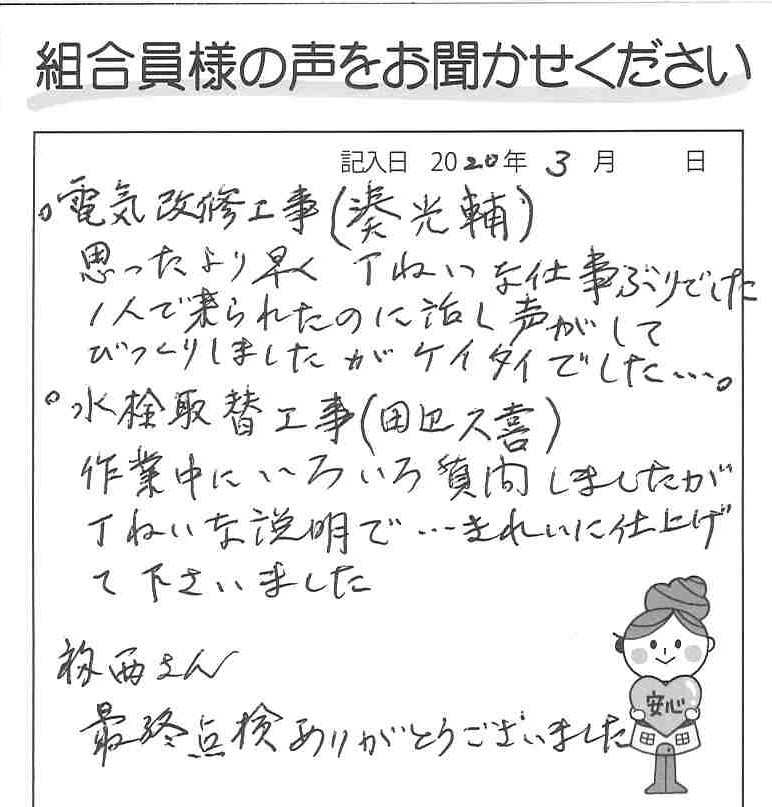 組合員様の声をお聞かせください
記入日 2020年 3月 日
。電気改修工事(湊光輔)
思ったより早く丁ねいな仕事ぶりでした
1人で来られたのに話し声がして
びっくりしましたがケイタイでした…。
。水栓取替工事(田辺久喜)
作業中にいろいろ質問しましたが
丁ねいな説明で…きれいに仕上げ
て下さいました
西さん
最終点検ありがとうございました
安心